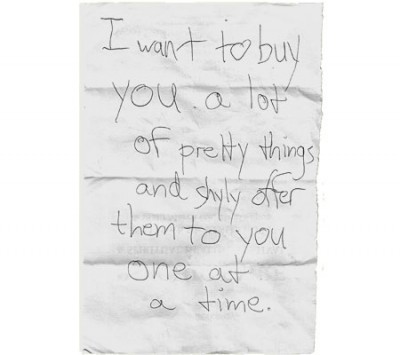 I want to buy
you a lot
of pretty things
and shyly offer
them to you
one at
a time.